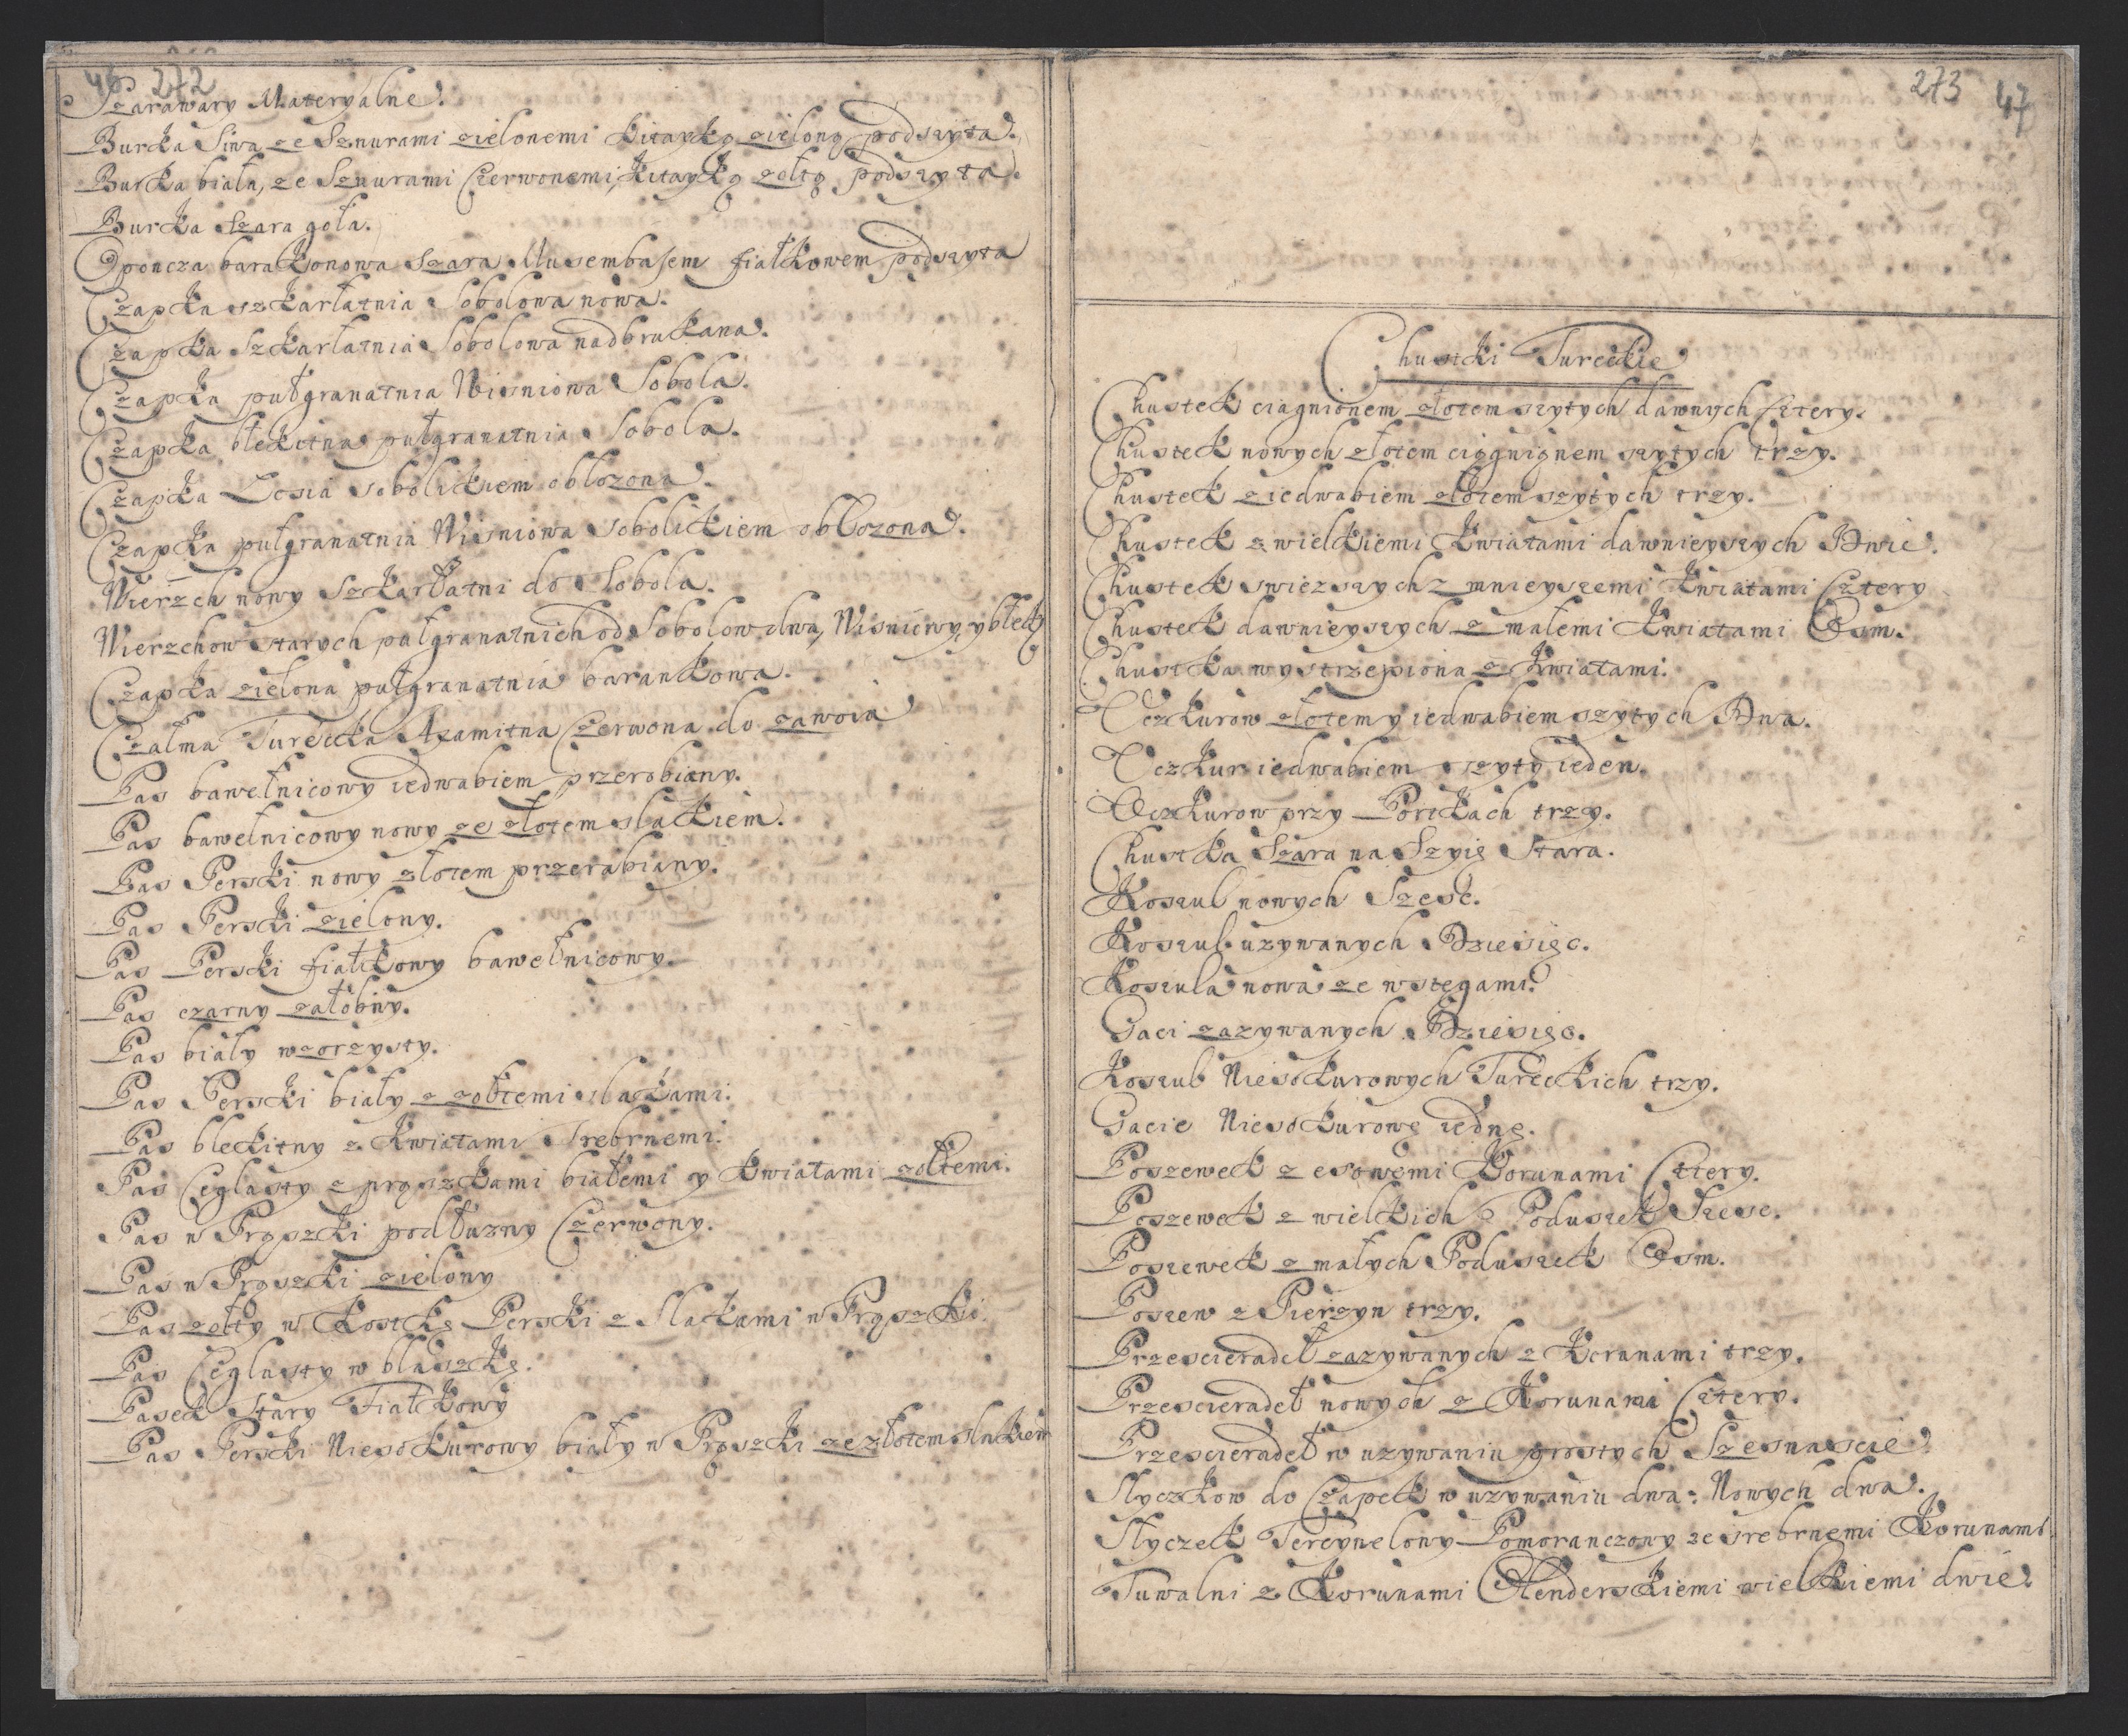 46 272
Szarawary Materyalne.
Burka Siwa ze Sznurami zielonemi Kitayką zieloną podszyta.
Burka biała, ze Sznurami Czerwonemi, Kitayką zołtą podszyta.
Burka Szara goła.
Oponcza barakonowa Szara Musembasem fiałkowem podszyta
Czapka szkarłatnia Sobolowa nowa.
Czapka Szkarłatnia Sobolowa nadbrukana.
Czapka pułgranatnia Wisniowa Sobola.
Czapka błekitna pułgranatnia Sobola.
Czapka Łosia sobolikiem oblozona.
Czapka pułgranatnia Wisniowa Sobolikiem obłozona.
Wierzch nowy Szkarłatni do Sobola.
Wierzchow starych pułgranatnich od Sobolow dwa, Wisniowy, y błęk:
Czapka zielona pułgranatnia barankowa.
Czałma Turecka Axamitna Czerwona do zawoia
Pas bawełnicowy iedwabiem przerobiany.
Pas bawełnicowy nowy ze złotem slakiem.
Pas Perski nowy złotem przerabiany.
Pas Perski zielony.
Pas Perski fiałkowy bawełnicowy.
Pas czarny załobny.
Pas biały wzorzysty.
Pas Perski biały z zołtemi slakami.
Pas blekitny z Kwiatami Srebrnemi.
Pas Ceglasty z prązkami białemi y Kwiatami zołtemi.
Pas w Prąszki podłuzny Czerwony.
Pas w Prąszki zielony
Pas zołty w Kostkę Perski z Slakami w Prąszki.
Pas Ceglasty w blaszkę.
Pasek Stary Fiałkowy
Pas Perski Niesokurowy biały w Prąszki ze złotem slakiem
273 47
Chustki Tureckie
Chustek ciagnionem złotem szytych dawnych Cztery.
Chustek nowych złotem ciągnignem szytych trzy.
Chustek z iedwabiem złotem szytych trzy.
Chustek z wielkiemi Kwiatami dawnieyszych Dwie.
Chustek swiezszych z mnieyszemi Kwiatami Cztery
Chustek dawnieyszych z małemi Kwiatami Osm.
Chustka wystrzepiona z Kwiatami.
Oczkurow złotem y iedwabiem szytych Dwa.
Oczkur iedwabiem szyty ieden.
Oczkurow przy Portkach trzy.
Chustka Szara na Szyię Stara.
Koszul nowych Szesć.
Koszul uzywanych Dziesięc.
Koszula nowa ze wstęgami.
Gaci zazywanych Dziesięc.
Koszul Niesokurowych Tureckich trzy.
Gacie Niesokurowę iednę.
Poszewek z esowemi Korunami Cztery.
Poszewek z wielkich Poduszek Szesc.
Poszewek z małych Poduszek Osm.
Poszew z Pierzyn trzy.
Przescieradeł zazywanych z Koranami trzy.
Przescieradeł nowych z Korunami Cztery.
Przescieradeł w uzywaniu prostych Szesnascie.
Slyczkow do Czapek w uzywaniu dwa: Nowych dwa.
Slyczek Tercynelowy Pomoranczowy ze srebrnemi Korunami
Tuwalni z Korunami Olenderskiemi wielkiemi dwie.